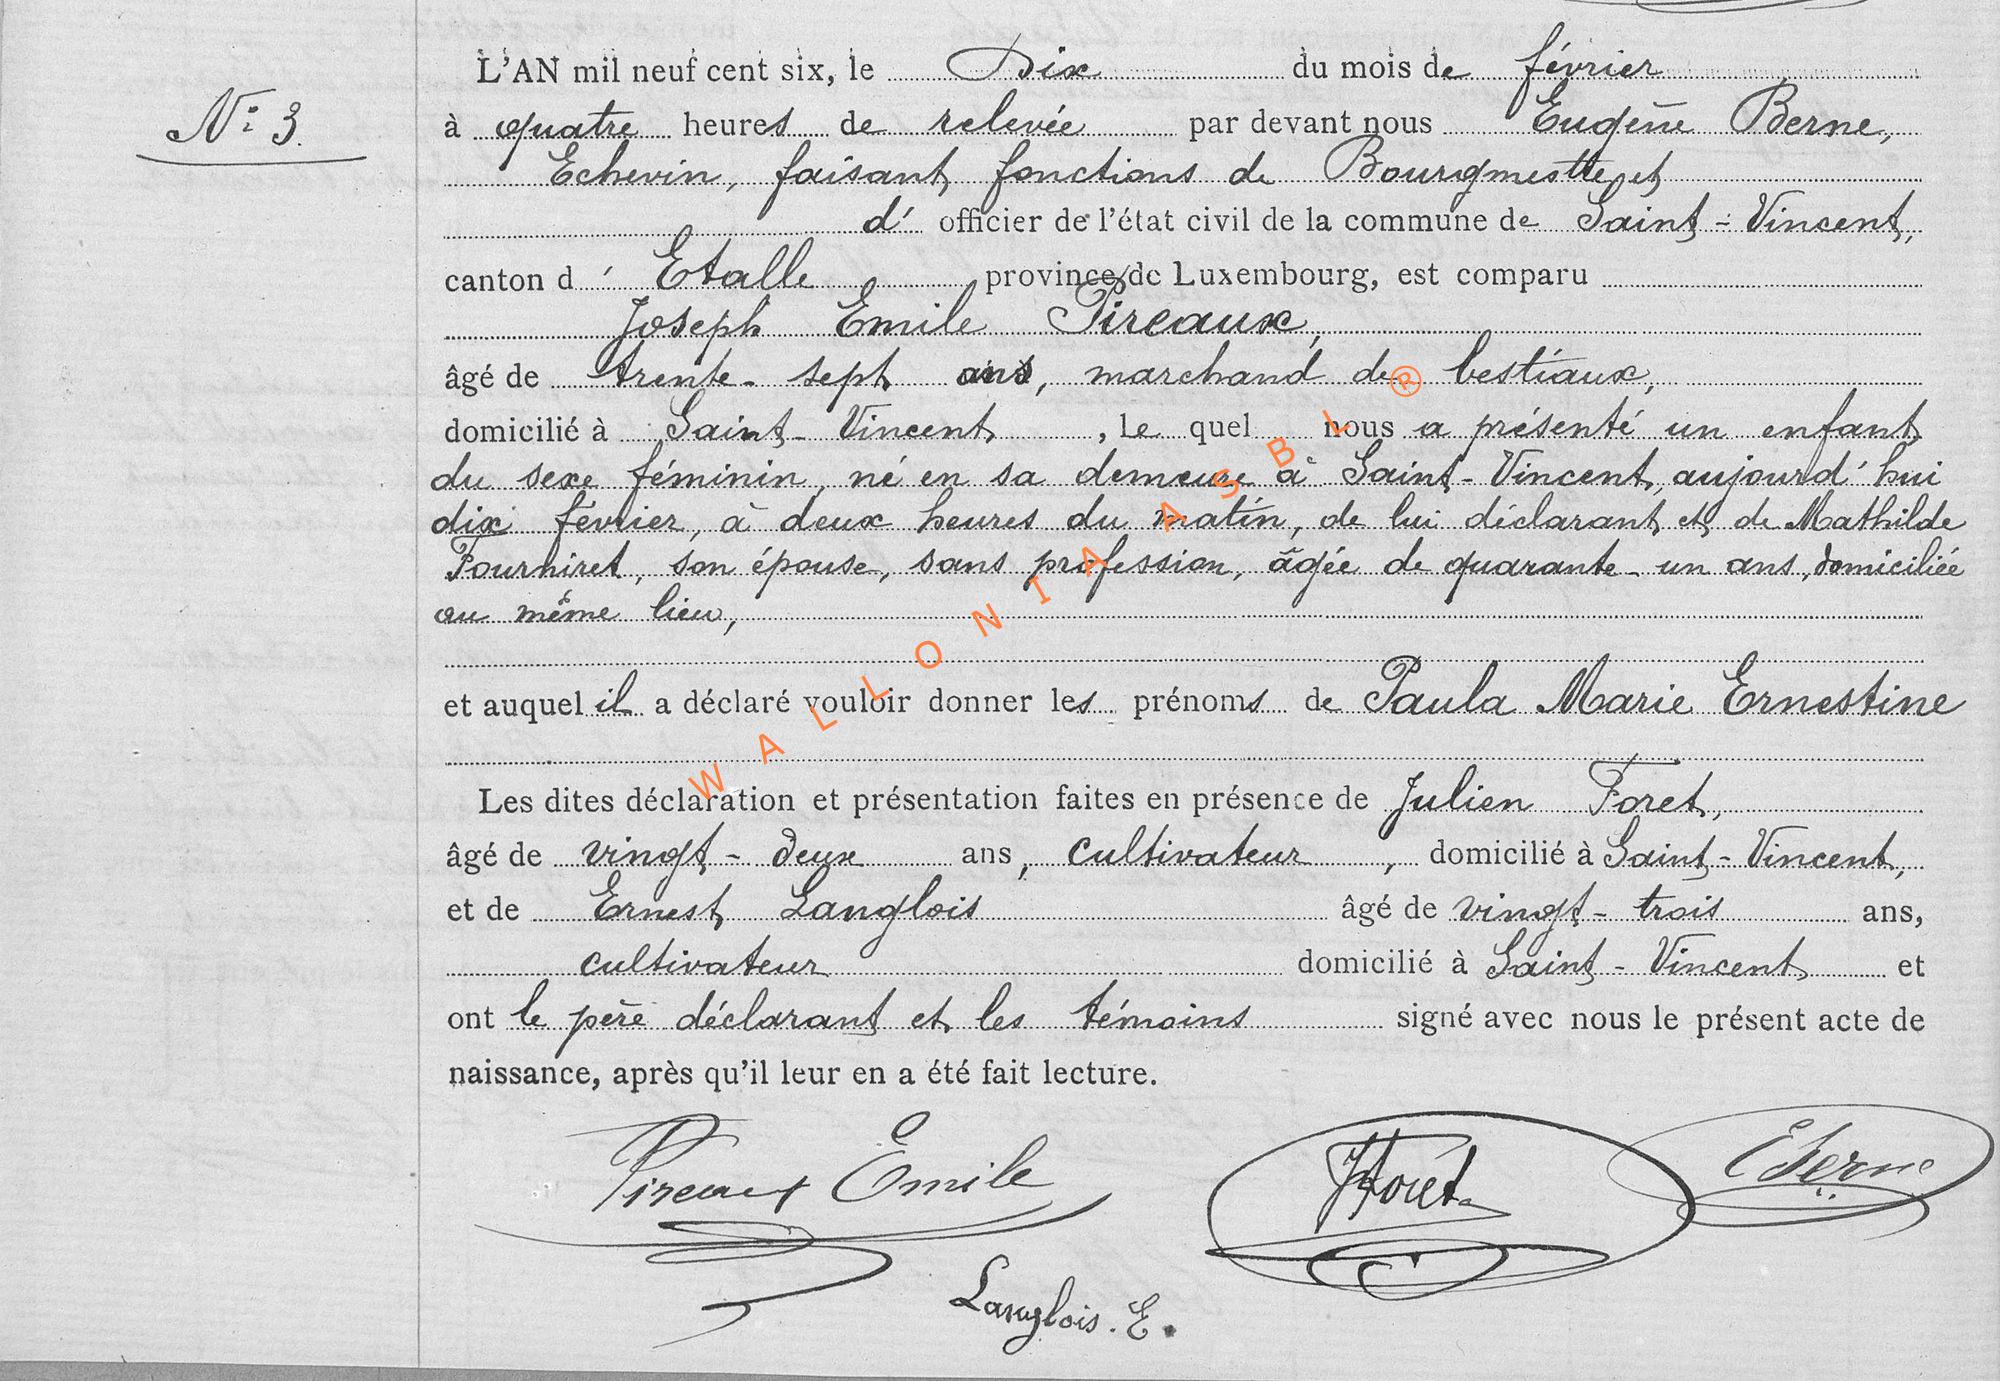 L'AN mil neuf cent six, le Dix du mois de février
N° 3.
à quatre heures de relevée par devant nous Eugène Berne,
Echevin, faisant fonctions de Bourgmestre et
d' officier de l'état civil de la commune de Saint-Vincent,
canton d' Etalle province de Luxembourg, est comparu
Joseph Emile Pireaux,
âgé de trente-sept ans, marchand de bestiaux,
domicilié à Saint-Vincent, le quel nous a présenté un enfant
du sexe féminin, né en sa demeure à Saint-Vincent, aujourd'hui
dix février, à deux heures du matin, de lui déclarant et de Mathilde
Fourniret, son épouse, sans profession, âgée de quarante-un ans, domiciliée
au même lieu,
et auquel il a déclaré vouloir donner les prénoms de Paula Marie Ernestine
Les dites déclaration et présentation faites en présence de Julien Foret,
âgé de vingt-deux ans, cultivateur, domicilié à Saint-Vincent,
et de Ernest Langlois âgé de vingt-trois ans,
cultivateur domicilié à Saint-Vincent et
ont le père déclarant et les témoins signé avec nous le présent acte de
naissance, après qu'il leur en a été fait lecture.
Pireaux Emile JForêt EBerne
Langlois. E.
WALLONIA ASBL ®